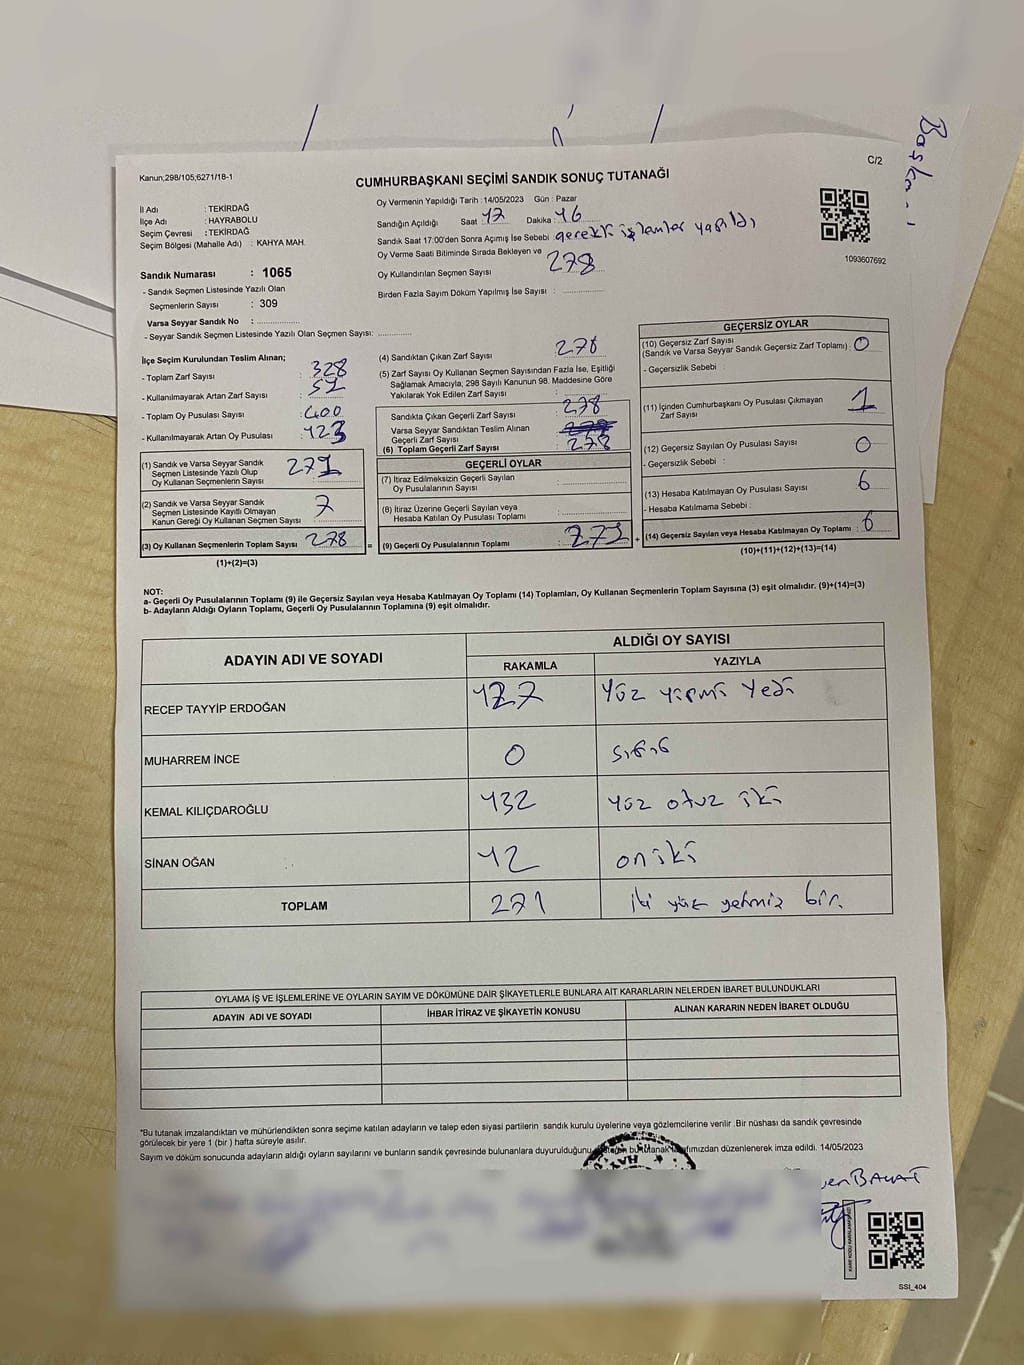 Başka
Kanun;298/105,6271/18-1
C/2
CUMHURBAŞKANI SEÇİMİ SANDIK SONUÇ TUTANAĞI
İl Adı : TEKİRDAĞ
İlçe Adı : HAYRABOLU
Seçim Çevresi : TEKİRDAĞ
Seçim Bölgesi (Mahalle Adı) : KAHYA MAH.
Oy Vermenin Yapıldığı Tarih : 14/05/2023 Gün : Pazar
Sandığın Açıldığı Saat : 17 Dakika : 16
Sandık Saat 17:00'den Sonra Açımış İse Sebebi : gerekli işlemler yapıldı
Oy Verme Saati Bitiminde Sırada Bekleyen ve
Oy Kullandırılan Seçmen Sayısı 278
Birden Fazla Sayım Döküm Yapılmış İse Sayısı :
1093607692
Sandık Numarası : 1065
- Sandık Seçmen Listesinde Yazılı Olan
Seçmenlerin Sayısı : 309
Varsa Seyyar Sandık No :
- Seyyar Sandık Seçmen Listesinde Yazılı Olan Seçmen Sayısı:
İlçe Seçim Kurulundan Teslim Alınan;
- Toplam Zarf Sayısı : 328
- Kullanılmayarak Artan Zarf Sayısı :
- Toplam Oy Pusulası Sayısı : 400
- Kullanılmayarak Artan Oy Pusulası : 123
(1) Sandık ve Varsa Seyyar Sandık
Seçmen Listesinde Yazılı Olup
Oy Kullanan Seçmenlerin Sayısı 271
(2) Sandık ve Varsa Seyyar Sandık
Seçmen Listesinde Kayıtlı Olmayan
Kanun Gereği Oy Kullanan Seçmen Sayısı 7
(3) Oy Kullanan Seçmenlerin Toplam Sayısı 278
(1)+(2)=(3)
(4) Sandıktan Çıkan Zarf Sayısı : 278
(5) Zarf Sayısı Oy Kullanan Seçmen Sayısından Fazla İse, Eşitliği
Sağlamak Amacıyla; 298 Sayılı Kanunun 98. Maddesine Göre
Yakılarak Yok Edilen Zarf Sayısı :
Sandıkta Çıkan Geçerli Zarf Sayısı : 278
Varsa Seyyar Sandıktan Teslim Alınan
Geçerli Zarf Sayısı :
(6) Toplam Geçerli Zarf Sayısı 278
GEÇERLİ OYLAR
(7) İtiraz Edilmeksizin Geçerli Sayılan
Oy Pusulalarının Sayısı :
(8) İtiraz Üzerine Geçerli Sayılan veya
Hesaba Katılan Oy Pusulası Toplamı :
= (9) Geçerli Oy Pusulalarının Toplamı : 271 +
GEÇERSİZ OYLAR
(10) Geçersiz Zarf Sayısı
(Sandık ve Varsa Seyyar Sandık Geçersiz Zarf Toplamı) : 0
- Geçersizlik Sebebi :
(11) İçinden Cumhurbaşkanı Oy Pusulası Çıkmayan
Zarf Sayısı : 1
(12) Geçersiz Sayılan Oy Pusulası Sayısı : 0
- Geçersizlik Sebebi :
(13) Hesaba Katılmayan Oy Pusulası Sayısı : 6
- Hesaba Katılmama Sebebi :
(14) Geçersiz Sayılan veya Hesaba Katılmayan Oy Toplamı : 6
(10)+(11)+(12)+(13)=(14)
NOT:
a- Geçerli Oy Pusulalarının Toplamı (9) ile Geçersiz Sayılan veya Hesaba Katılmayan Oy Toplamı (14) Toplamları, Oy Kullanan Seçmenlerin Toplam Sayısına (3) eşit olmalıdır. (9)+(14)=(3)
b- Adayların Aldığı Oyların Toplamı, Geçerli Oy Pusulalarının Toplamına (9) eşit olmalıdır.
ADAYIN ADI VE SOYADI
ALDIĞI OY SAYISI
RAKAMLA YAZIYLA
RECEP TAYYİP ERDOĞAN 127 Yüz yirmi yedi
MUHARREM İNCE 0 sıfır
KEMAL KILIÇDAROĞLU 132 yüz otuz iki
SİNAN OĞAN 12 oniki
TOPLAM 271 iki yüz yetmiş bir.
OYLAMA İŞ VE İŞLEMLERİNE VE OYLARIN SAYIM VE DÖKÜMÜNE DAİR ŞİKAYETLERLE BUNLARA AİT KARARLARIN NELERDEN İBARET BULUNDUKLARI
ADAYIN ADI VE SOYADI İHBAR İTİRAZ VE ŞİKAYETİN KONUSU ALINAN KARARIN NEDEN İBARET OLDUĞU
"Bu tutanak imzalandıktan ve mühürlendikten sonra seçime katılan adayların ve talep eden siyasi partilerin sandık kurulu üyelerine veya gözlemcilerine verilir .Bir nüshası da sandık çevresinde
görülecek bir yere 1 (bir ) hafta süreyle asılır.
Sayım ve döküm sonucunda adayların aldığı oyların sayılarını ve bunların sandık çevresinde bulunanlara duyurulduğunu bu tutanak tarafımızdan düzenlenerek imza edildi. 14/05/2023
SSI_404